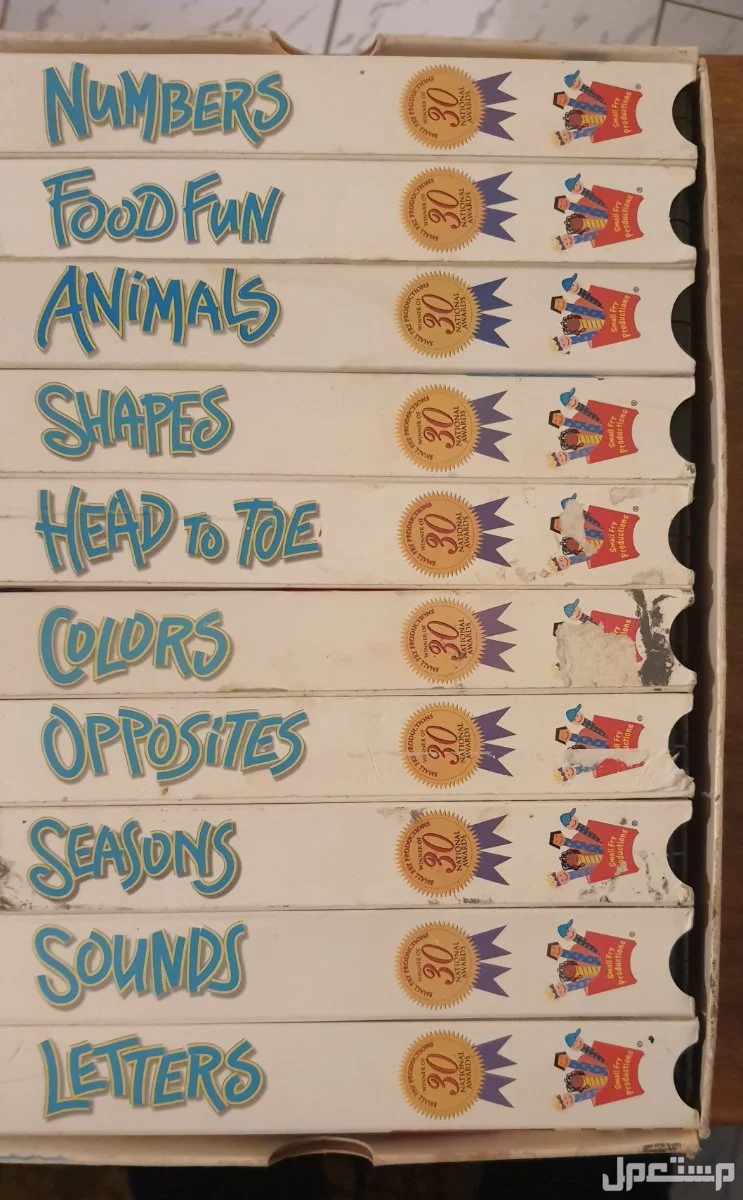 NUMBERS
SMALL FRY PRODUCTIONS
WINNER OF
30
NATIONAL
AWARDS
Small Fry
Productions
®
FOOD FUN
SMALL FRY PRODUCTIONS
WINNER OF
30
NATIONAL
AWARDS
Small Fry
Productions
®
ANiMALS
SMALL FRY PRODUCTIONS
WINNER OF
30
NATIONAL
AWARDS
Small Fry
Productions
®
SHAPES
SMALL FRY PRODUCTIONS
WINNER OF
30
NATIONAL
AWARDS
Small Fry
Productions
®
HEAD to TOE
SMALL FRY PRODUCTIONS
WINNER OF
30
NATIONAL
AWARDS
Small Fry
Productions
®
COLORS
SMALL FRY PRODUCTIONS
WINNER OF
30
NATIONAL
AWARDS
®
OPPOSiTES
SMALL FRY PRODUCTIONS
WINNER OF
30
NATIONAL
AWARDS
®
SEASONS
SMALL FRY PRODUCTIONS
WINNER OF
30
NATIONAL
AWARDS
Small Fry
Productions
®
SOUNDS
SMALL FRY PRODUCTIONS
WINNER OF
30
NATIONAL
AWARDS
Small Fry
Productions
®
LETTERS
SMALL FRY PRODUCTIONS
WINNER OF
30
NATIONAL
AWARDS
Small Fry
Productions
®
مستعمل